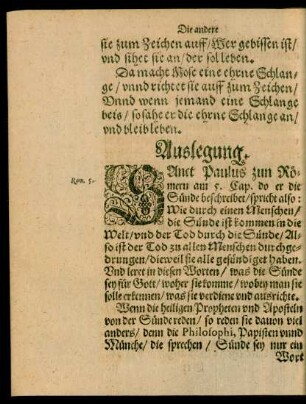 Die andere
sie zum Zeichen auff/ Wer gebissen ist/
vnd sihet sie an/ der sol leben.
Da macht Mose eine ehrne Schlan-
ge/ vnnd richtet sie auff zum Zeichen/
Vnnd wenn jemand eine Schlange
beis/ so sahe er die ehrne Schlange an/
vnd bleib leben.
Auslegung.
SAnct Paulus zun Rö-
Rom. 5.
mern am 5. Cap. do er die
Sünde beschreibet/ spricht also:
Wie durch einen Menschen/
die Sünde ist kommen in die
Welt/ vnd der Tod durch die Sünde/ Al-
so ist der Tod zu allen Menschen durchge-
drungen/ dieweil sie alle gesündiget haben.
Vnd leret in diesen Worten/ was die Sünde
sey für Gott/ woher sie kome/ wobey man sie
solle erkennen/ was sie verdiene vnd ausrichte.
Wenn die heiligen Propheten vnd Aposteln
von der Sünde reden/ so reden sie dauon viel
anders/ denn die Philosophi, Papisten vnnd
Münche/ die sprechen/ Sünde sey nur ein
Wort